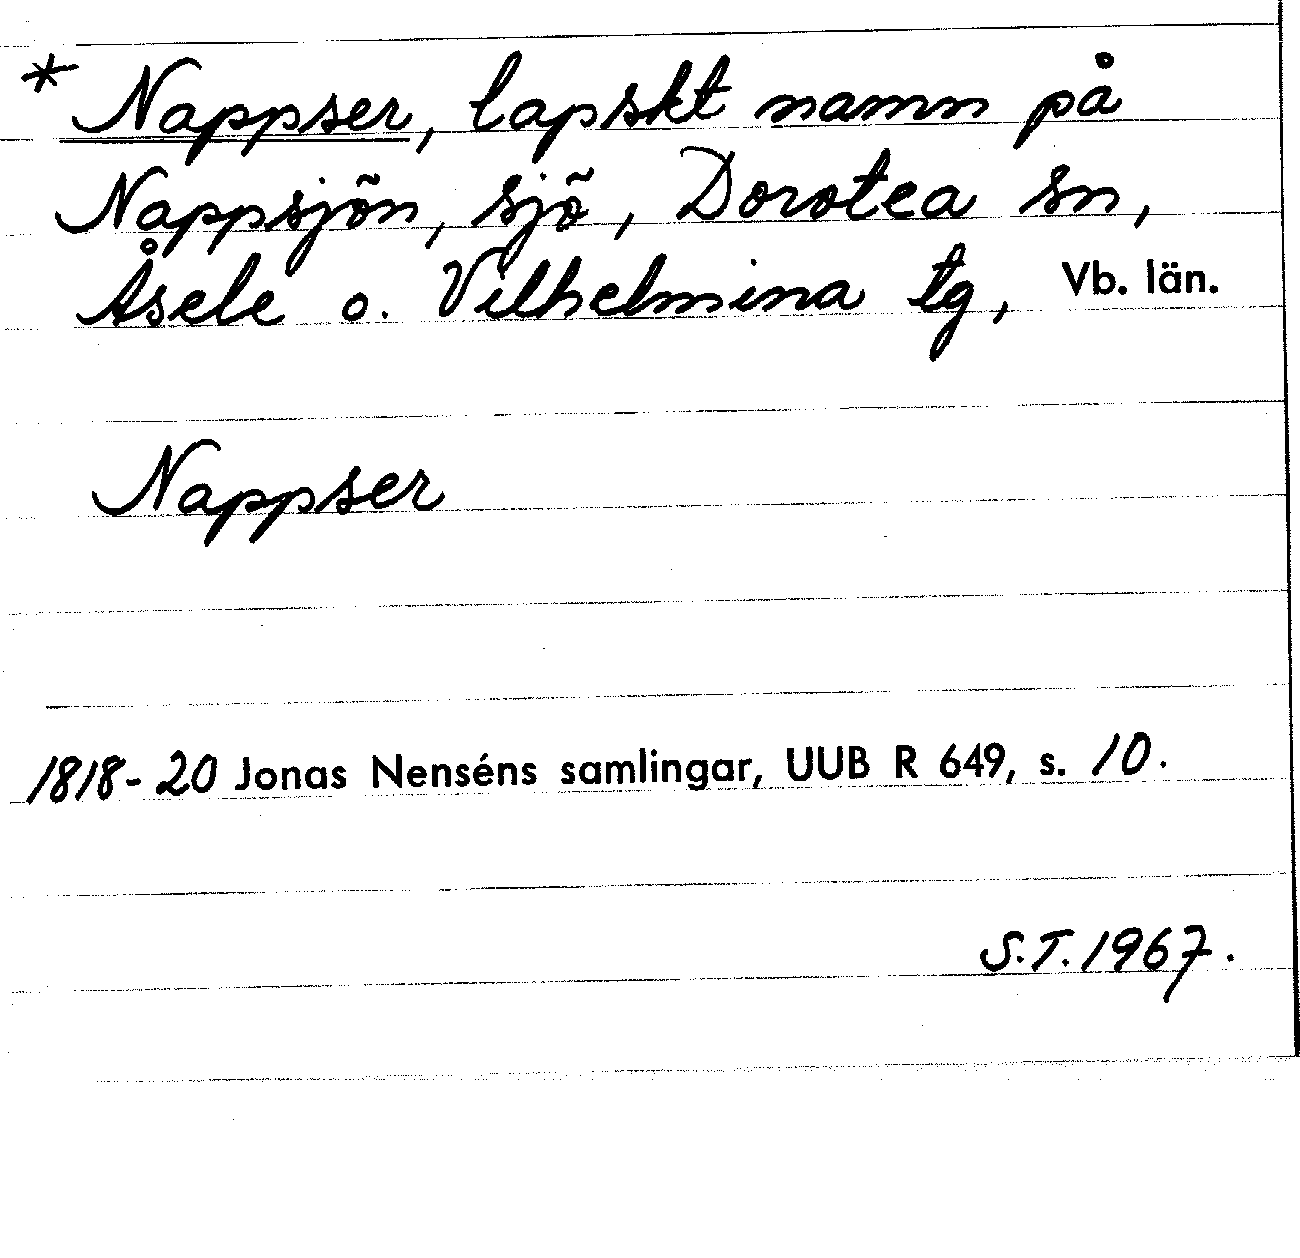 * Nappser, lapskt namn på
Nappsjön, sjö, Dorotea sn,
Åsele o. Vilhelmina tg, Vb. län.
Nappser
1818-20 Jonas Nenséns samlingar, UUB R 649, s. 10.
S.T. 1967.